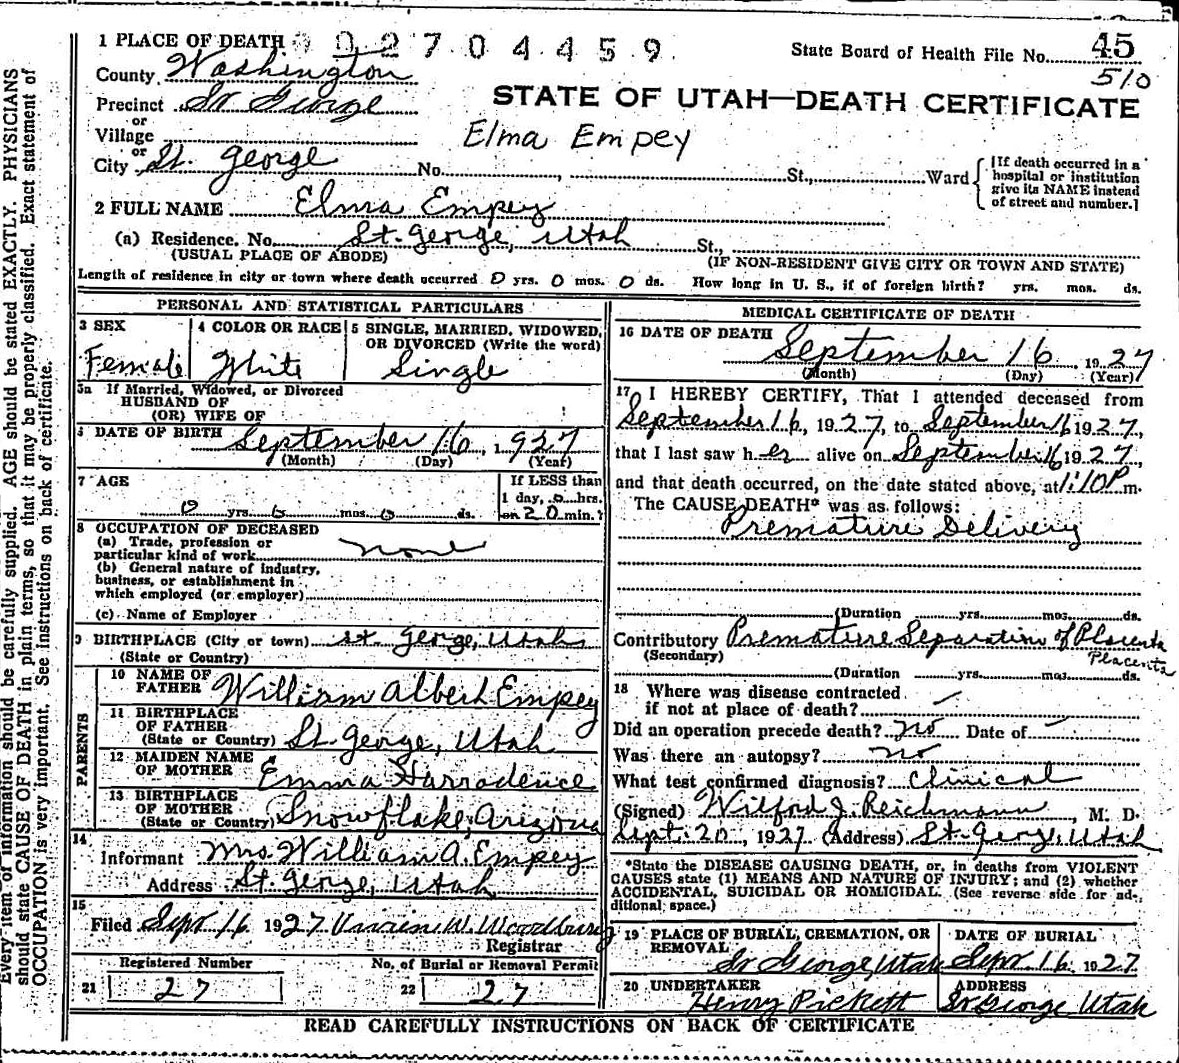 1 PLACE OF DEATH 2704459 State Board of Health File No. 45
510
County Washington
Precinct St George
STATE OF UTAH—DEATH CERTIFICATE
or
Village
Elma Empey
or
City St. George No. St., Ward
[If death occurred in a hospital or institution give its NAME instead of street and number.]
2 FULL NAME Elma Empey
(a) Residence. No. St. George, Utah St.,
(USUAL PLACE OF ABODE) (IF NON-RESIDENT GIVE CITY OR TOWN AND STATE)
Length of residence in city or town where death occurred 0 yrs. 0 mos. 0 ds. How long in U. S., if of foreign birth? yrs. mos. ds.
PERSONAL AND STATISTICAL PARTICULARS
3 SEX
Female
4 COLOR OR RACE
White
5 SINGLE, MARRIED, WIDOWED, OR DIVORCED (Write the word)
Single
5a If Married, Widowed, or Divorced
HUSBAND OF
(OR) WIFE OF
DATE OF BIRTH September 16, 1927
(Month) (Day) (Year)
7 AGE
0 yrs. 0 mos. 0 ds.
If LESS than
1 day, 0 hrs.
or 20 min.?
8 OCCUPATION OF DECEASED
(a) Trade, profession or
particular kind of work none
(b) General nature of industry,
business, or establishment in
which employed (or employer)
(c) Name of Employer
9 BIRTHPLACE (City or town) St. George, Utah
(State or Country)
PARENTS
10 NAME OF
FATHER William Albert Empey
11 BIRTHPLACE
OF FATHER
(State or Country) St. George, Utah
12 MAIDEN NAME
OF MOTHER Emma Harradence
13 BIRTHPLACE
OF MOTHER
(State or Country) Snowflake, Arizona
14
Informant Mrs. William A. Empey
Address St. George, Utah
15
Filed Sept 16 1927 W. Woodbury
Registrar
Registered Number No. of Burial or Removal Permit
21 27 22 27
MEDICAL CERTIFICATE OF DEATH
16 DATE OF DEATH
September 16, 1927
(Month) (Day) (Year)
17 I HEREBY CERTIFY, That I attended deceased from
September 16, 1927, to September 16 1927,
that I last saw her alive on September 16 1927,
and that death occurred, on the date stated above, at 1:10 P m.
The CAUSE DEATH* was as follows:
Premature Delivery
(Duration yrs. mos. ds.
Contributory Premature Separation of Placenta
(Secondary) Placenta
(Duration yrs. mos. ds.
18 Where was disease contracted
if not at place of death?
Did an operation precede death? no Date of
Was there an autopsy? no
What test confirmed diagnosis? Clinical
(Signed) Wilford J. Reichmann, M. D.
Sept. 20, 1927 (Address) St. George, Utah
*State the DISEASE CAUSING DEATH, or, in deaths from VIOLENT
CAUSES state (1) MEANS AND NATURE OF INJURY; and (2) whether
ACCIDENTAL, SUICIDAL OR HOMICIDAL. (See reverse side for ad-
ditional space.)
19 PLACE OF BURIAL, CREMATION, OR
REMOVAL
St George Utah
DATE OF BURIAL
Sept 16, 1927
20 UNDERTAKER
Henry Pickett
ADDRESS
St George Utah
READ CAREFULLY INSTRUCTIONS ON BACK OF CERTIFICATE
Every item of information should be carefully supplied. AGE should be stated EXACTLY. PHYSICIANS
should state CAUSE OF DEATH in plain terms, so that it may be properly classified. Exact statement of
OCCUPATION is very important. See instructions on back of certificate.